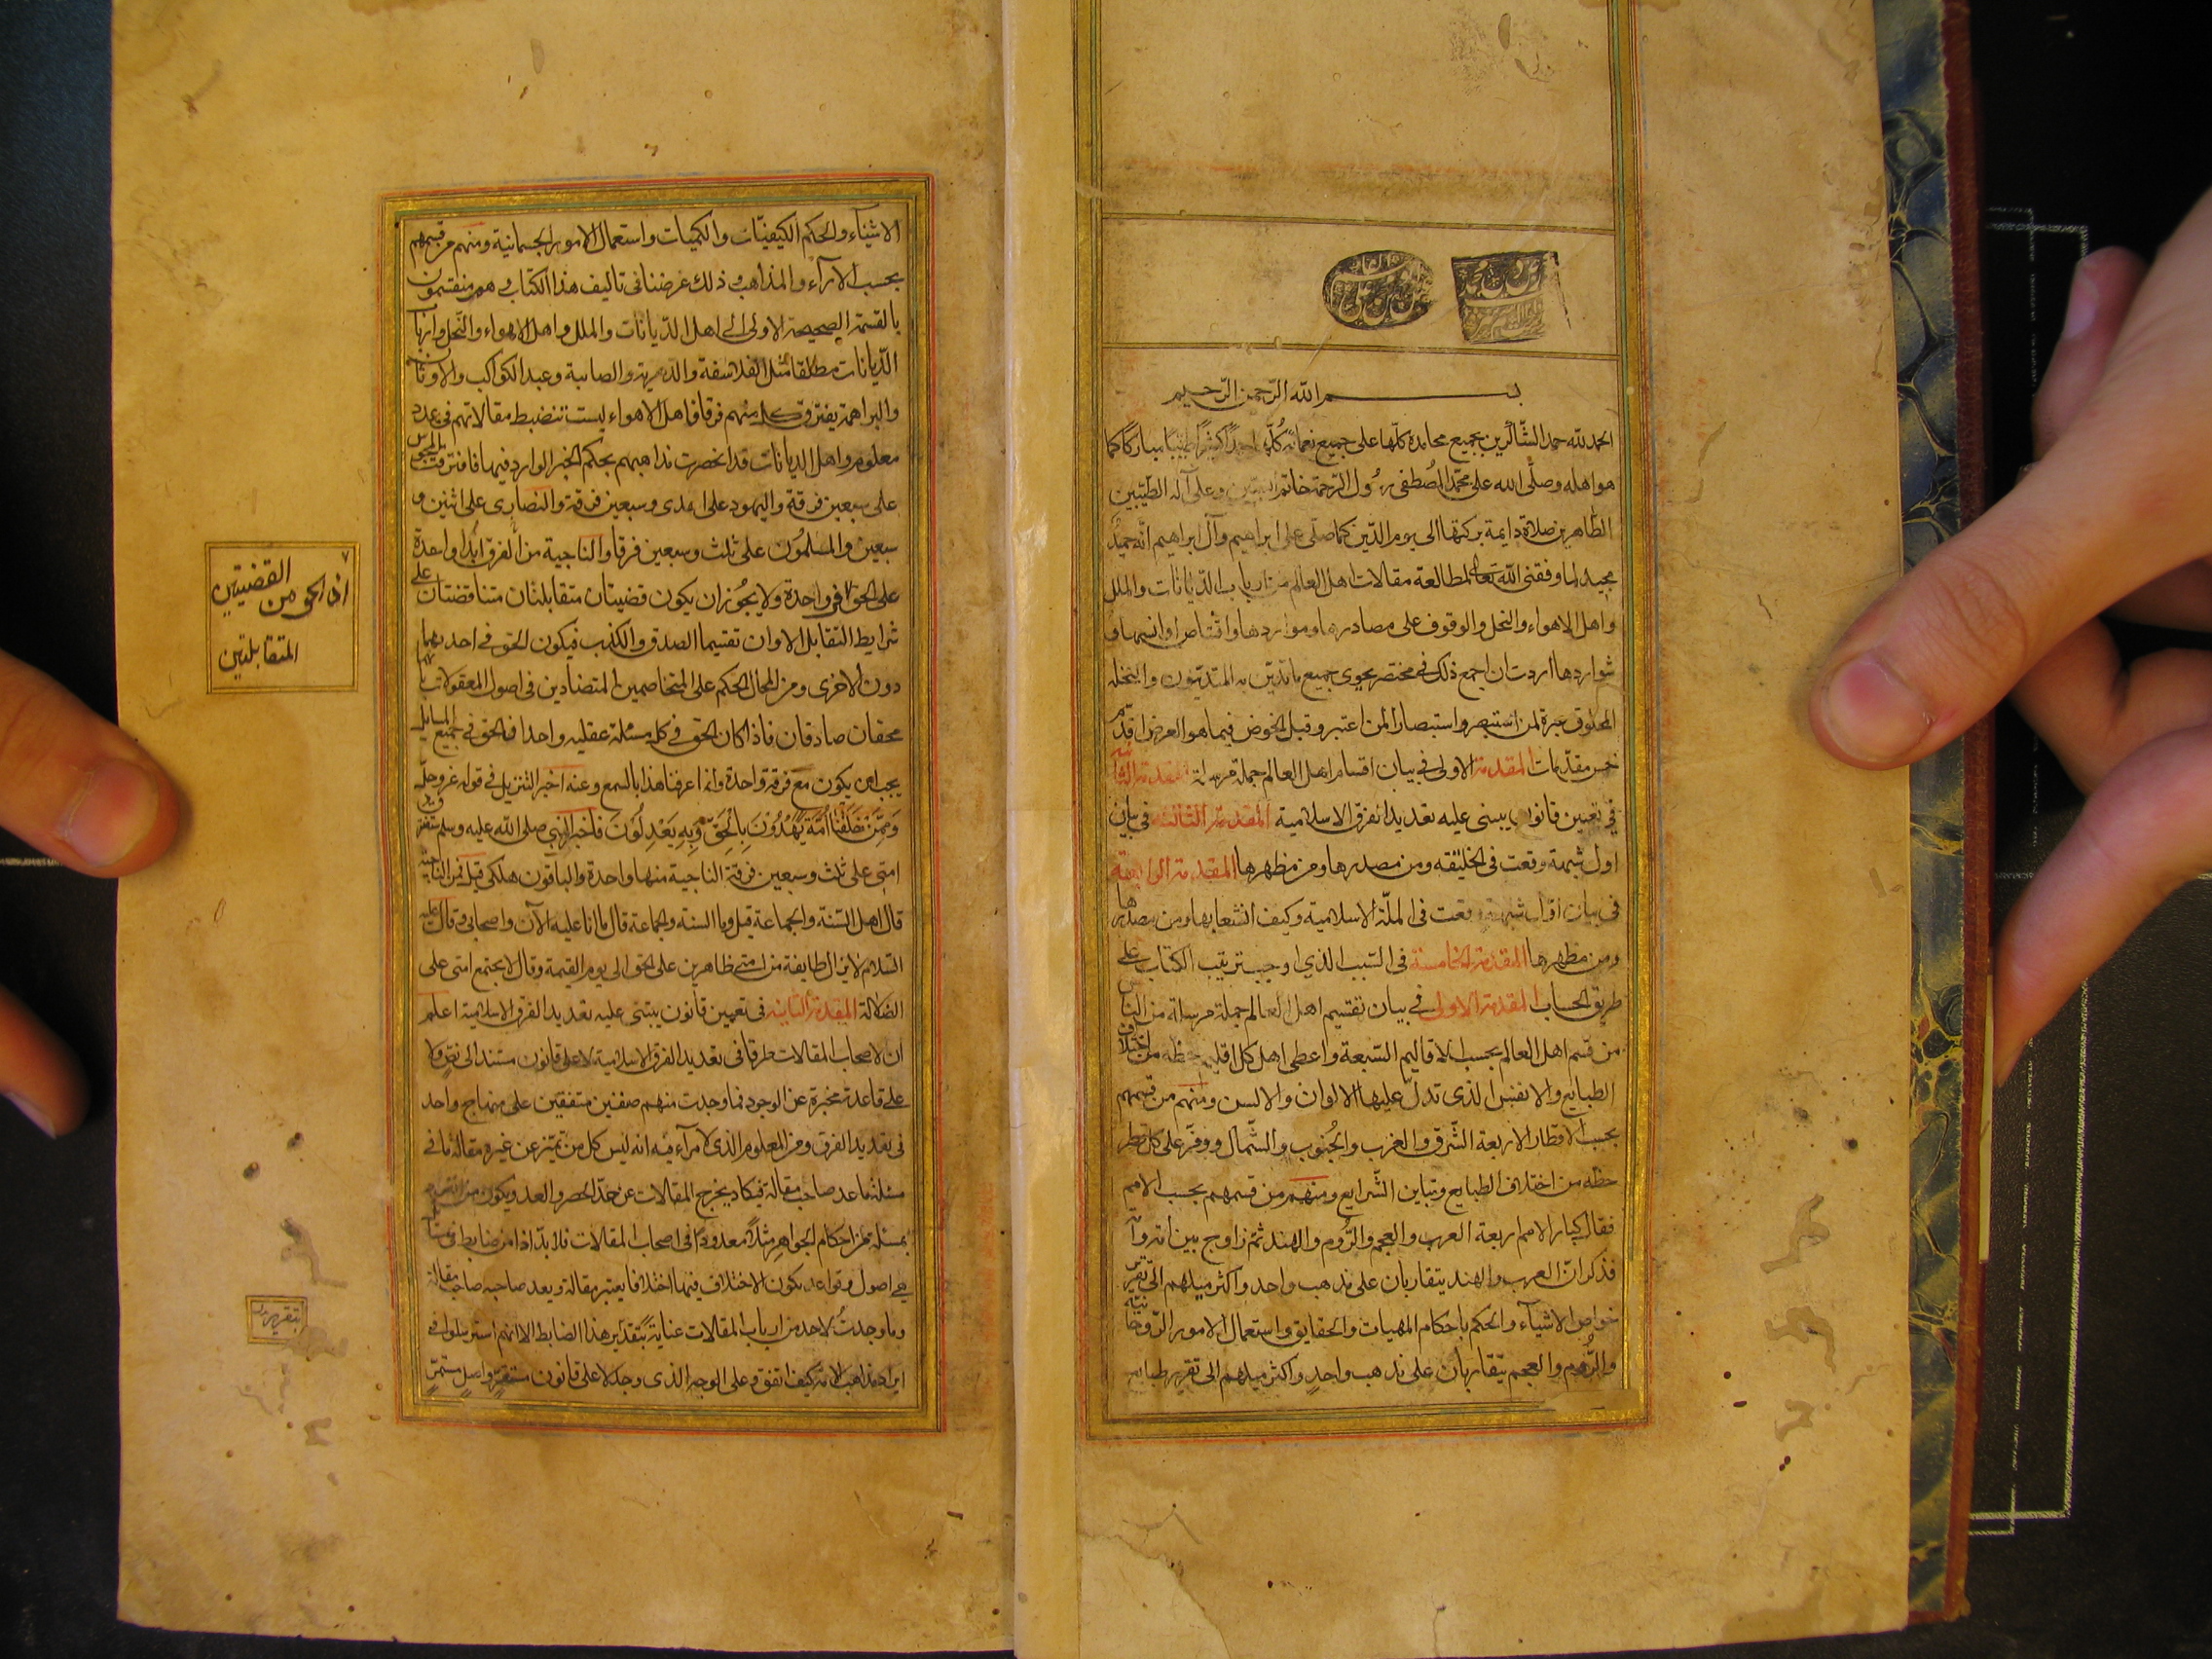 بسم الله الرحمن الرحيم
الحمد لله حمد الشاكرين بجميع محامده كلها على جميع نعمائه كلها حمدا كثيرا طيبا مباركا كما
هو اهله وصلى الله على محمد المصطفى رسول الرحمة خاتم النبيين وعلى آله الطيبين
الطاهرين صلاة دايمة بركتها الى يوم الدين كما صلى على ابراهيم وآل ابراهيم انه حميد
مجيد لما وفقنى الله تعالى لمطالعة مقالات اهل العالم من ارباب الديانات والملل
واهل الاهواء والنحل والوقوف على مصادرها ومواردها واقتناص اوانسها و
شواردها اردت ان اجمع ذلك في مختصر يحوى جميع ما تدين به المتدينون وانتحله
المنتحلون عبرة لمن استبصر واستبصارا لمن اعتبر وقبل الخوض فيما هو الغرض اقدم
خمس مقدمات المقدمة الاولى في بيان اقسام اهل العالم جملة مرسلة المقدمة الثانية
في تعيين قانون يبنى عليه تعديد الفرق الاسلامية المقدمة الثالثة في بيان
اول شبهة وقعت فى الخليقه ومن مصدرها ومن مظهرها المقدمة الرابعة
فى بيان اول شبهة وقعت فى الملة الاسلامية وكيف انشعابها ومن مصدرها
ومن مظهرها المقدمة الخامسة فى السبب الذي اوجب ترتيب الكتاب على
طريق الحساب المقدمة الاولى في بيان تقسيم اهل العالم جملة مرسلة من الناس
من قسم اهل العالم بحسب الاقاليم السبعة واعطى اهل كل اقليم حظه من اختلاف
الطبايع والانفس الذى تدل عليها الالوان والالسن ومنهم من قسمهم
بحسب الاقطار الاربعة الشرق والغرب والجنوب والشمال ووفر على كل قطر
حظه من اختلاف الطبايع وتباين الشرايع ومنهم من قسمهم بحسب الامم
فقال كبار الامم اربعة العرب والعجم والروم والهند ثم زاوج بين امة وامة
فذكر ان العرب والهند يتقاربان على مذهب واحد واكثر ميلهم الى تقرير
خواص الاشياء والحكم باحكام المهيات والحقايق واستعمال الامور الروحانية
والروم والعجم يتقاربان على مذهب واحد واكثر ميلهم الى تقرير طبايع
الاشياء والحكم الكيفيات والكميات واستعمال الامور الجسمانية ومنهم من قسمهم
بحسب الآراء والمذاهب وذلك غرضنا فى تاليف هذا الكتاب وهم منقسمون
بالقسمة الصحيحة الاولى الى اهل الديانات والملل واهل الاهواء والنحل وارباب
الديانات مطلقا مثل الفلاسفة والدهرية والصابية وعبد الكواكب والاوثان
والبراهمة يفترق كل منهم فرقا فاهل الاهواء ليست تنضبط مقالاتهم فى عدد
معلوم واهل الديانات قد انحصرت مذاهبهم بحكم الخبر الوارد فيها فافترقت المجوس
على سبعين فرقة واليهود على احدى وسبعين فرقة والنصارى على اثنين و
سبعين والمسلمون على ثلث وسبعين فرقا والناجية من الفرق ابدا واحدة
على الحق في واحدة ولا يجوز ان يكون قضيتان متقابلتان متناقضتان على
شرايط التقابل الا وان تقتسما الصدق والكذب فيكون الحق فى احديهما
دون الاخرى ومن المحال الحكم على المتخاصمين المتضادين فى اصول المعقولات بانهما
محقان صادقان فاذا كان الحق فى كل مسئلة عقليه واحدا فالحق فى جميع المسايل
يجب ان يكون مع فرقة واحدة وانما عرفنا هذا بالسمع وعنه اخبر التنزيل فى قوله عز وجل
وممن خلقنا امة يهدون بالحق وبه يعدلون فاخبر النبي صلى الله عليه وسلم ستفترق
امتى على ثلث وسبعين فرقة الناجية منها واحدة والباقون هلكى قيل فمن الناجية
قال اهل السنة والجماعة قيل وما السنة والجماعة قال ما انا عليه الآن واصحابى وقال عليه
السلام لا يزال طايفة من امتى ظاهرين على الحق الى يوم القيمة وقال لا يجتمع امتى على
الضلالة المقدمة الثانية فى تعيين قانون يبتنى عليه تعديد الفرق الاسلامية اعلم
ان لاصحاب المقالات طرقا فى تعديد الفرق الاسلامية لا على قانون مستند الى نص ولا
على قاعدة مخبرة عن الوجود فما وجدت منهم صنفين متفقين على منهاج واحد
فى تعديد الفرق ومن المعلوم الذى لا مراء فيه انه ليس كل من تميز عن غيره مقالة ما فى
مسئلة ما عد صاحب مقالة فيكاد يخرج المقالات عن حد الحصر والعد ويكون من انفرد
بمسئلة من احكام الجواهر مثلا معدودا فى اصحاب المقالات فلا بد اذا من ضابط فى مسائل
هي اصول وقواعد يكون الاختلاف فيها اختلافا يعتبر مقالة ويعد صاحبه صاحب مقالة
وما وجدت لاحد من ارباب المقالات عناية بتقدير هذا الضابط الا انهم استرسلوا فى
ايراد مذاهب الامة كيف اتفق وعلى الوجه الذى وجد لا على قانون مستقر واصل مستمر
اذ الحق من القضيتين
المتقابلتين
بتقرير